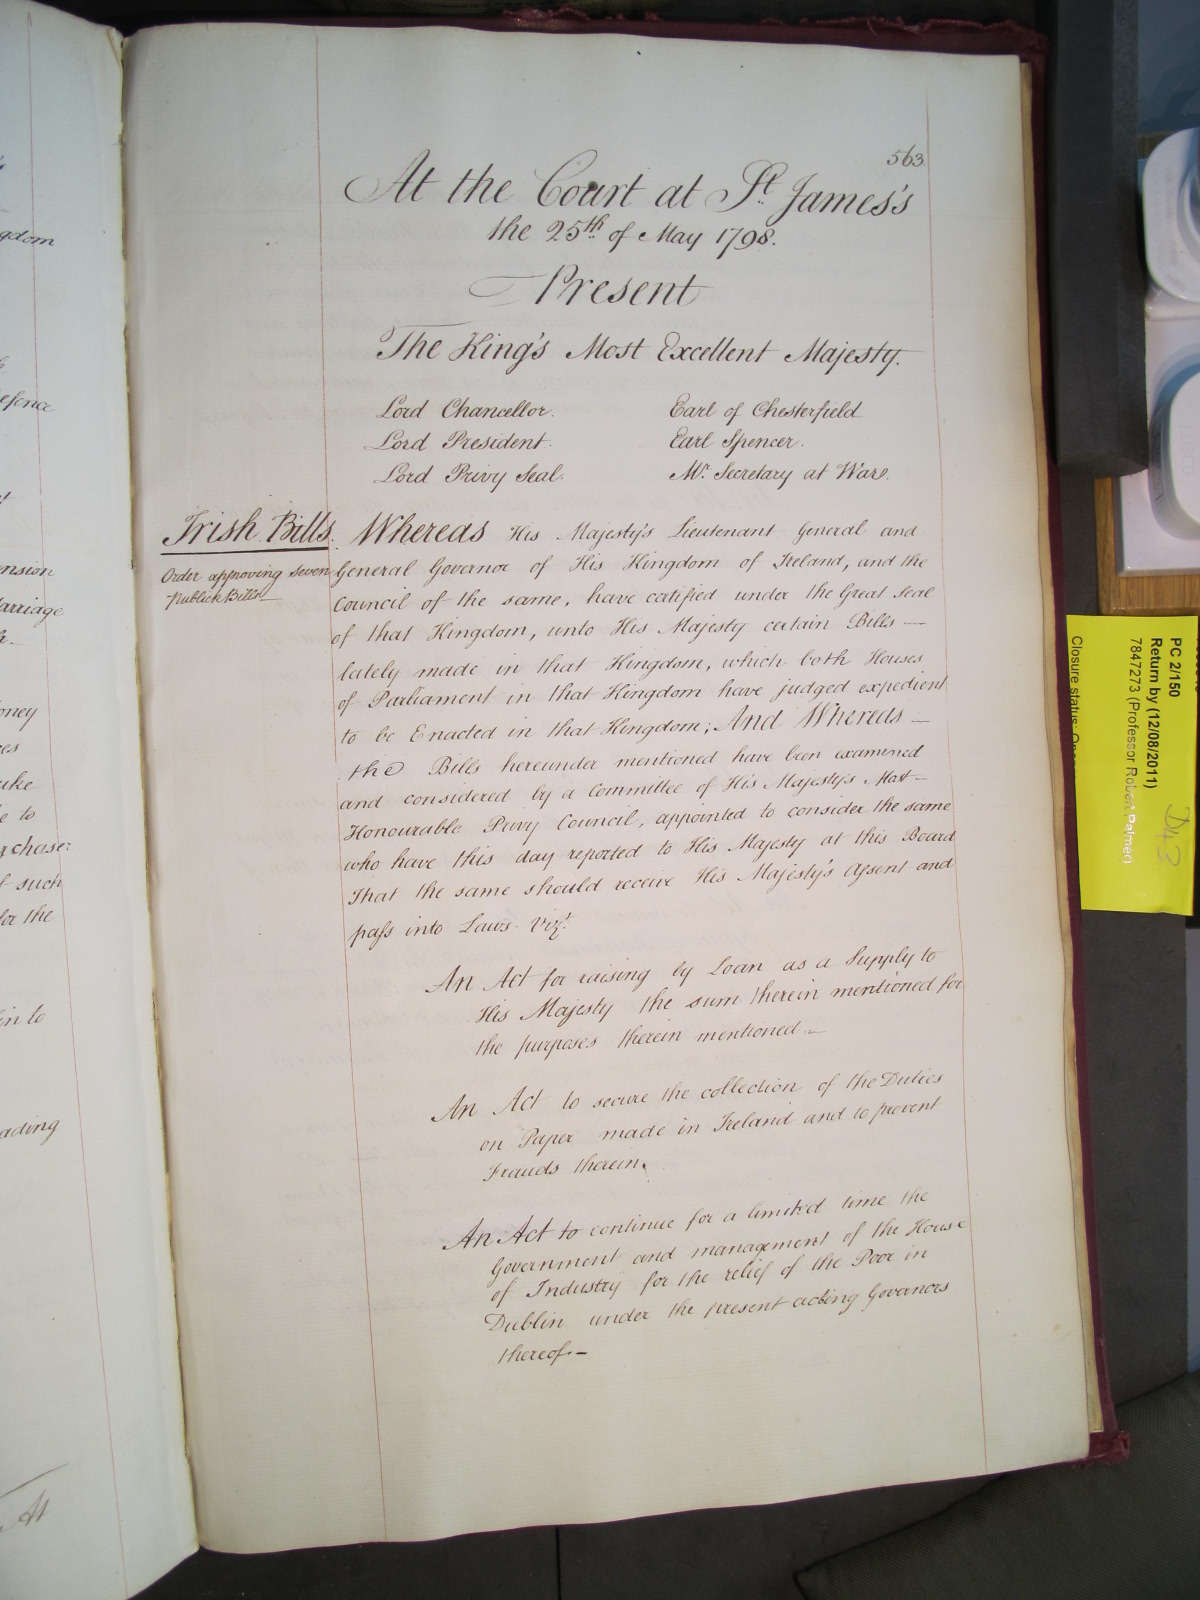 563.
At the Court at St. James's
the 25th. of May 1798.
Present
The King's Most Excellent Majesty.
Lord Chancellor. Earl of Chesterfield
Lord President. Earl Spencer.
Lord Privy Seal. Mr. Secretary at War.
Irish Bills.
Order approving seven
Publick Bills
Whereas His Majesty's Lieutenant General and
General Governor of His Kingdom of Ireland, and the
Council of the same, have certified under the Great Seal
of that Kingdom, unto His Majesty certain Bills —
lately made in that Kingdom, which both Houses
of Parliament in that Kingdom have judged expedient
to be Enacted in that Kingdom; And Whereas —
the Bills hereunder mentioned have been examined
and considered by a Committee of His Majesty's Most —
Honourable Privy Council, appointed to consider the same
who have this day reported to His Majesty at this Board
That the same should receive His Majesty's Assent and
pass into Laws Vizt.
An Act for raising by Loan as a Supply to
His Majesty the sum therein mentioned for
the purposes therein mentioned. —
An Act to secure the collection of the Duties
on Paper made in Ireland and to prevent
Frauds therein.
An Act to continue for a limited time the
Government and management of the House
of Industry for the relief of the Poor in
Dublin under the present acting Governors
thereof. —
gdom
efence
nsion
arriage
oney
es
uke
e to
chase
f such
for the
in to
ading
At
PC 2/150
Return by (12/08/2011)
7847273 (Professor Robert Palmer)
Closure status: Open
D43